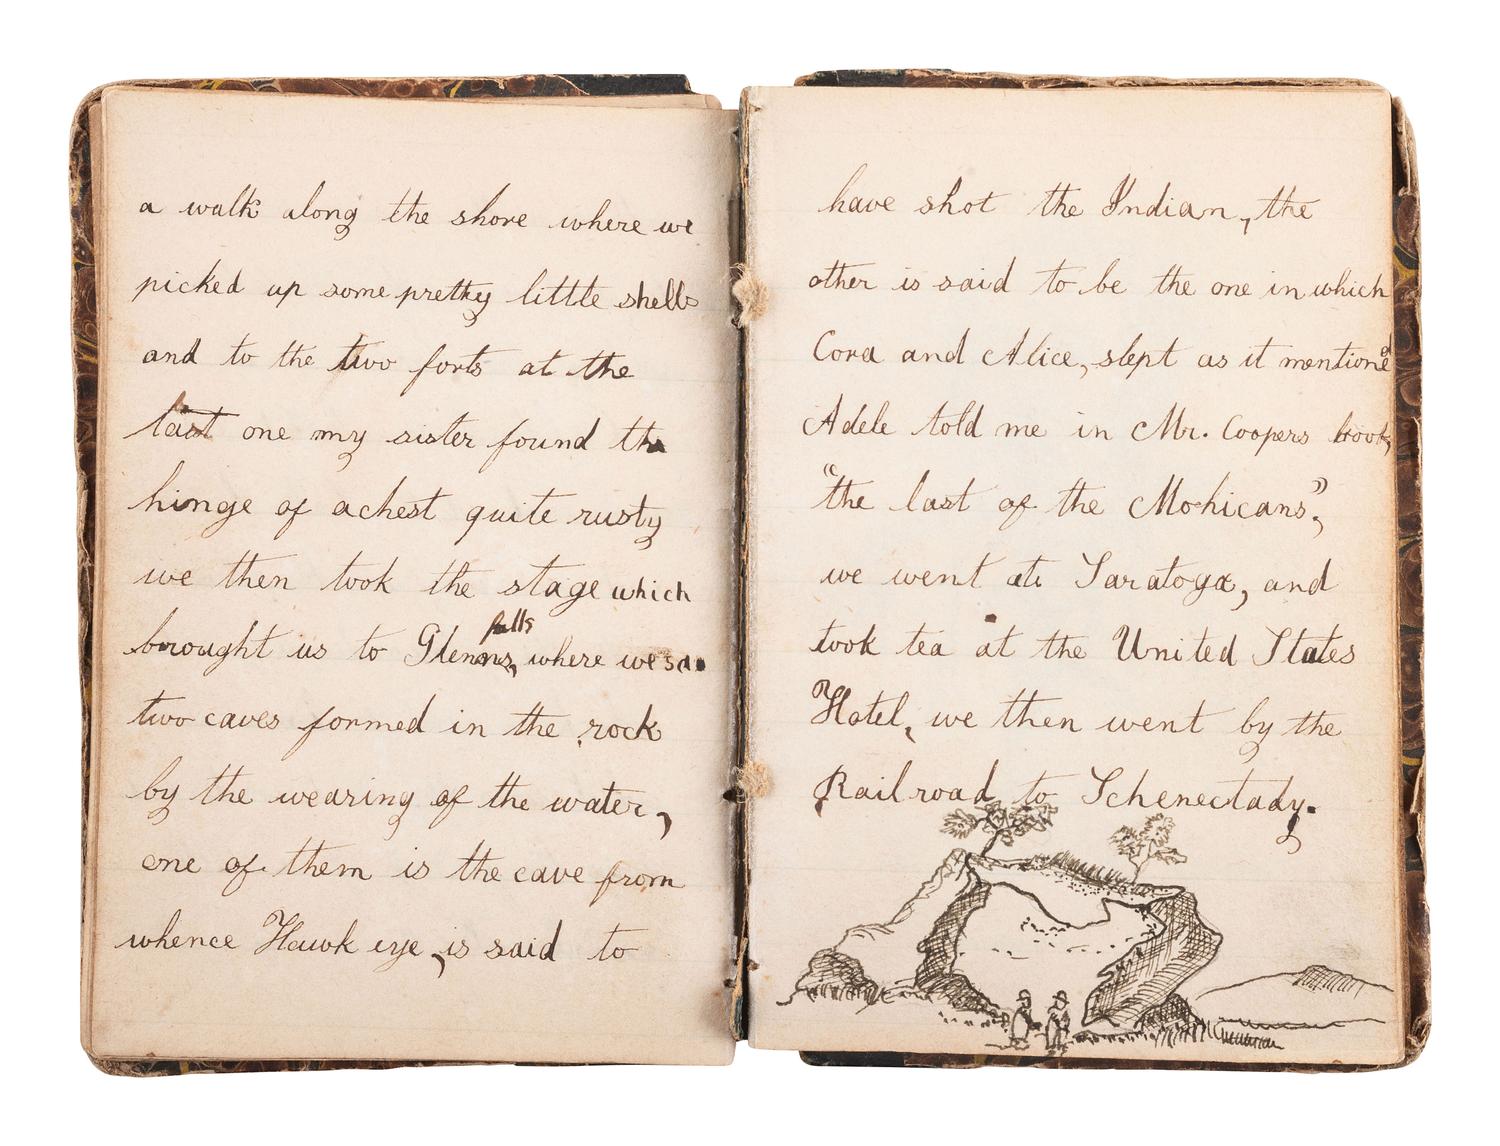 a walk along the shore where we
picked up some pretty little shells
and to the two forts at the
last one my sister found the
hinge of a chest quite rusty
we then took the stage which
brought us to Glenns falls, where we saw
two caves formed in the rock
by the wearing of the water,
one of them is the cave from
whence Hawk eye, is said to
have shot the Indian, the
other is said to be the one in which
Cora and Alice, slept as it mentioned
Adele told me in Mr. Coopers book,
"the last of the Mohicans",
we went to Saratoga, and
took tea at the United States
Hotel, we then went by the
Railroad to Schenectady.